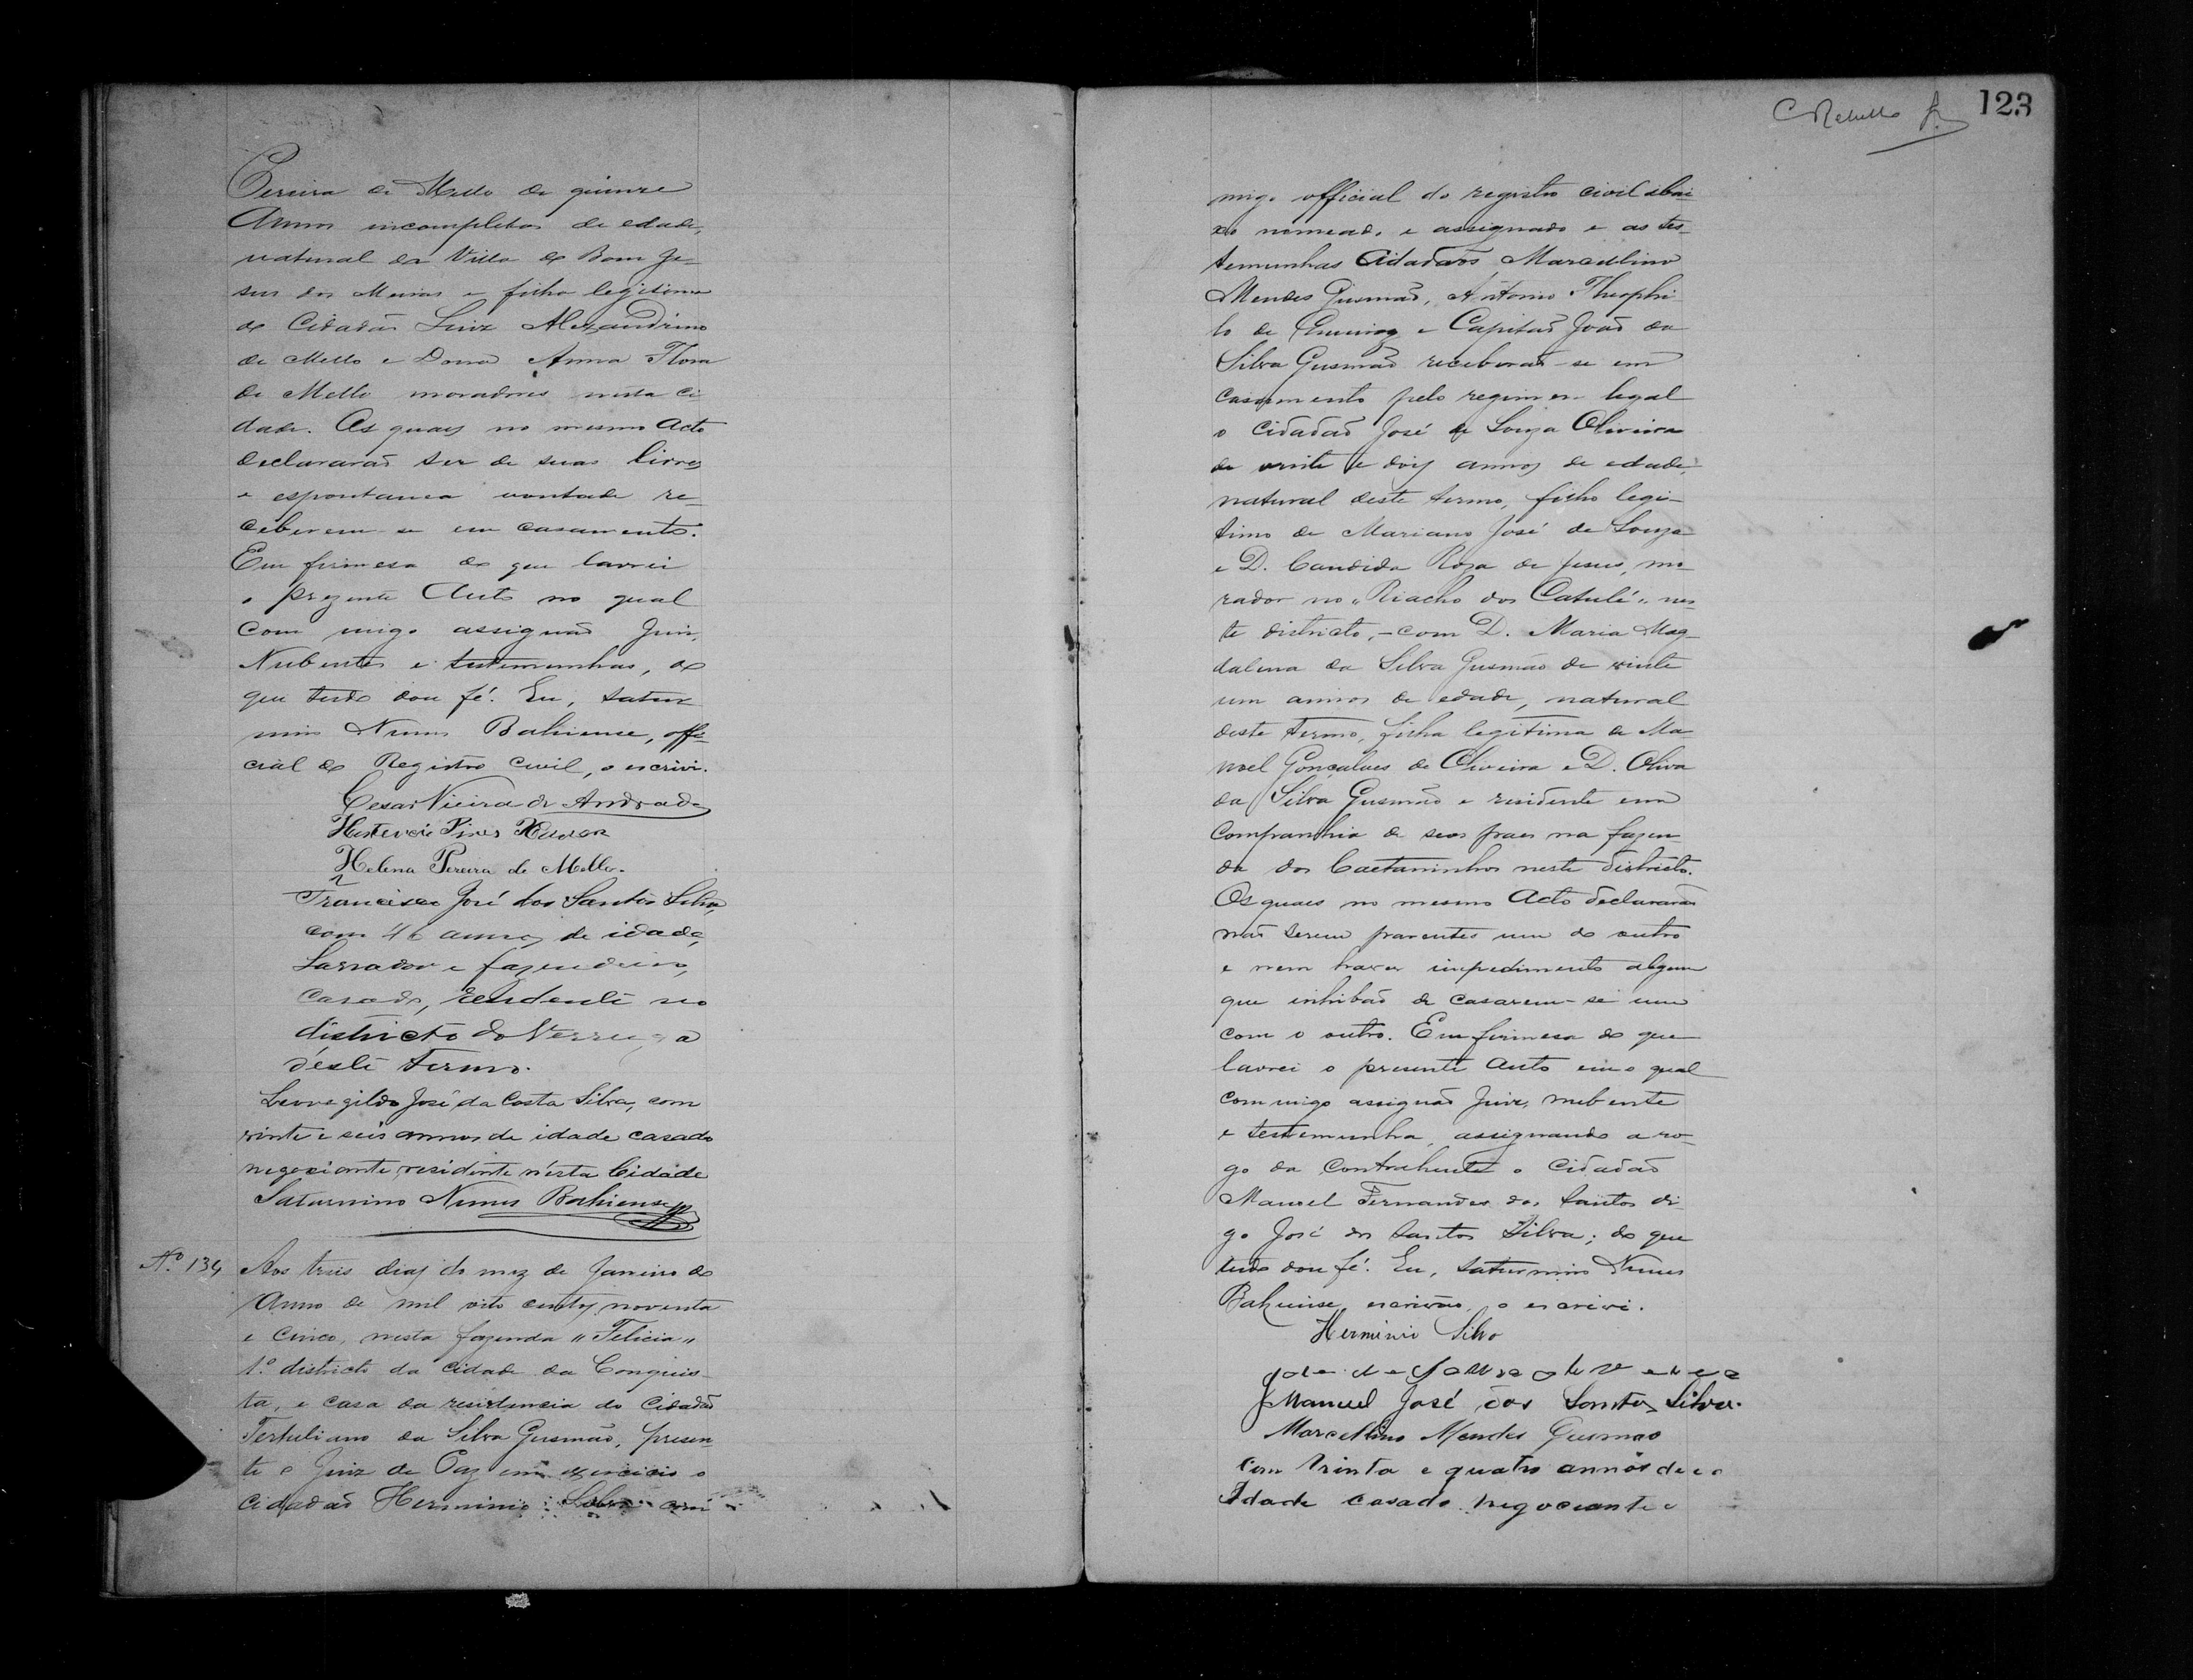 Pereira de Mello de quinze
Annos incompletos de edade,
natural da Villa de Bom Je-
sus dos Meiras e filha legitima
do Cidadão Luiz Alexandrino
de Mello e Dona Anna Flora
de Mello moradores nesta ci
dade. Os quaes no mesmo acto
declararaõ ser de suas livres
e espontanea vontade re-
ceberem se em casamento.
Em firmesa do que lavrei
o prezente Auto no qual
Com migo assignaõ Juiz,
Nubentes e testemunhas, do
que tudo dou fé. Eu, Satur
nino Nunes Bahiense, offi-
cial do Registro Civil, o escrivi.
Cesar Vieira de Andrade
Pires
Helena Pereira de Mello.
Francisco José dos Santos Silva,
com 46 annos de idade,
Lavrador e fazendeiro,
Casado, residente no
districto do Verruga
déste termo.
Leovegildo José da Costa Silva, com
vinte e seis annos de idade casado
negociante, residente nésta Cidade
Saturnino Nunes Bahiense
Nº 134 Aos treis dias do mez de Janeiro do
Anno de mil oito centos noventa
e cinco, nesta fazenda "Felicia"
1º districto da cidade da Conquis-
ta, e casa da residencia do Cidadão
Tertuliano da Silva Gusmão, presen-
te o Juiz de Paz em exercicio o
cidadaõ Herminio Silva com
C Rebello Jr. 123
migo official do registro civil abai-
xo nomeado, e assignado e as tes-
temunhas Cidadaõs Marcellino
Mendes Gusmaõ, Antonio Theophi
lo de e Capitaõ Joaõ da
Silva Gusmaõ receberaõ-se em
Casamento pelo regimen legal
o Cidadaõ José de Souza Oliveira
de vinte e dois annos de edade,
natural deste termo, filho legi-
timo de Mariano José de Souza
e D. Candida Roza de Jesus, mo-
rador no "Riacho dos Catulé" nes-
te districto, - com D. Maria Mag-
dalena da Silva Gusmão de vinte
um annos de edade, natural
deste termo, filha legitima de Ma-
noel Gonçalves de Oliveira e D. Oliva
da Silva Gusmão e residente em
Companhia de seos paes na fazen-
da dos Caetaninhos neste districto.
Os quaes no mesmo Acto declararaõ
naõ serem parentes um do outro
e nem haver impedimento algum
que inhibaõ de casarem-se um
com o outro. Em firmesa do que
lavrei o presente Auto em o qual
com migo assignaõ Juiz, nubente
e testemunha, assignando a ro-
go da Contrahente o Cidadaõ
Manoel Fernandes dos Santos di-
go José dos Santos Silva; do que
tudo dou fé. Eu, Saturnino Nunes
Bahiense, escrivão, o escrivi.
Herminio Silva
Jose de Souza oliveira
Manuel José dos Santos Silva.
Marcellino Mendes Gusmao
Com trinta e quatro annos de
Idade casado negociante e